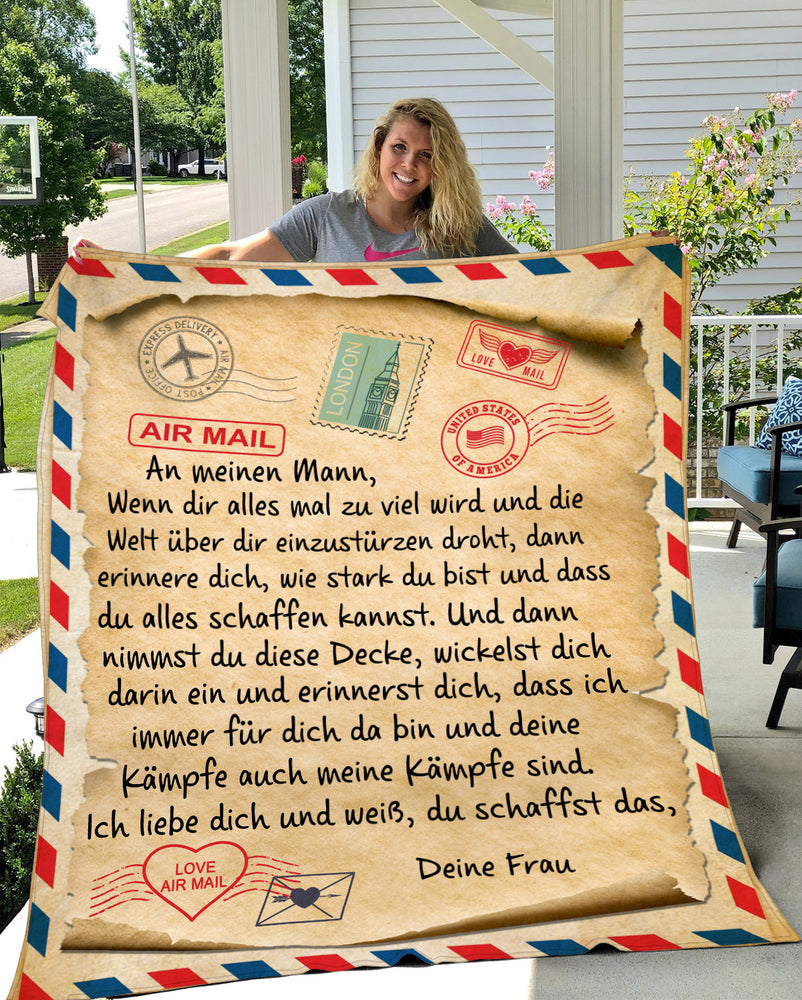 EXPRESS DELIVERY
AIR MAIL
POST OFFICE
LONDON
LOVE MAIL
UNITED STATES
OF AMERICA
AIR MAIL
An meinen Mann,
Wenn dir alles mal zu viel wird und die
Welt über dir einzustürzen droht, dann
erinnere dich, wie stark du bist und dass
du alles schaffen kannst. Und dann
nimmst du diese Decke, wickelst dich
darin ein und erinnerst dich, dass ich
immer für dich da bin und deine
Kämpfe auch meine Kämpfe sind.
Ich liebe dich und weiß, du schaffst das,
Deine Frau
LOVE
AIR MAIL